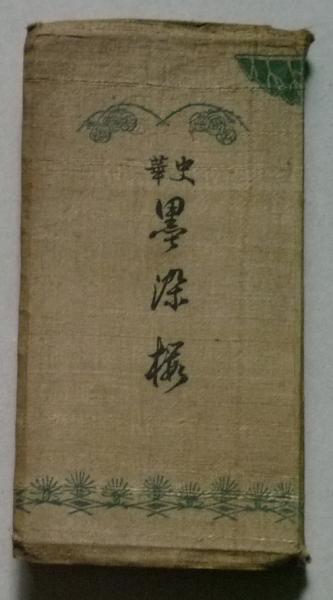 史華
墨染桜